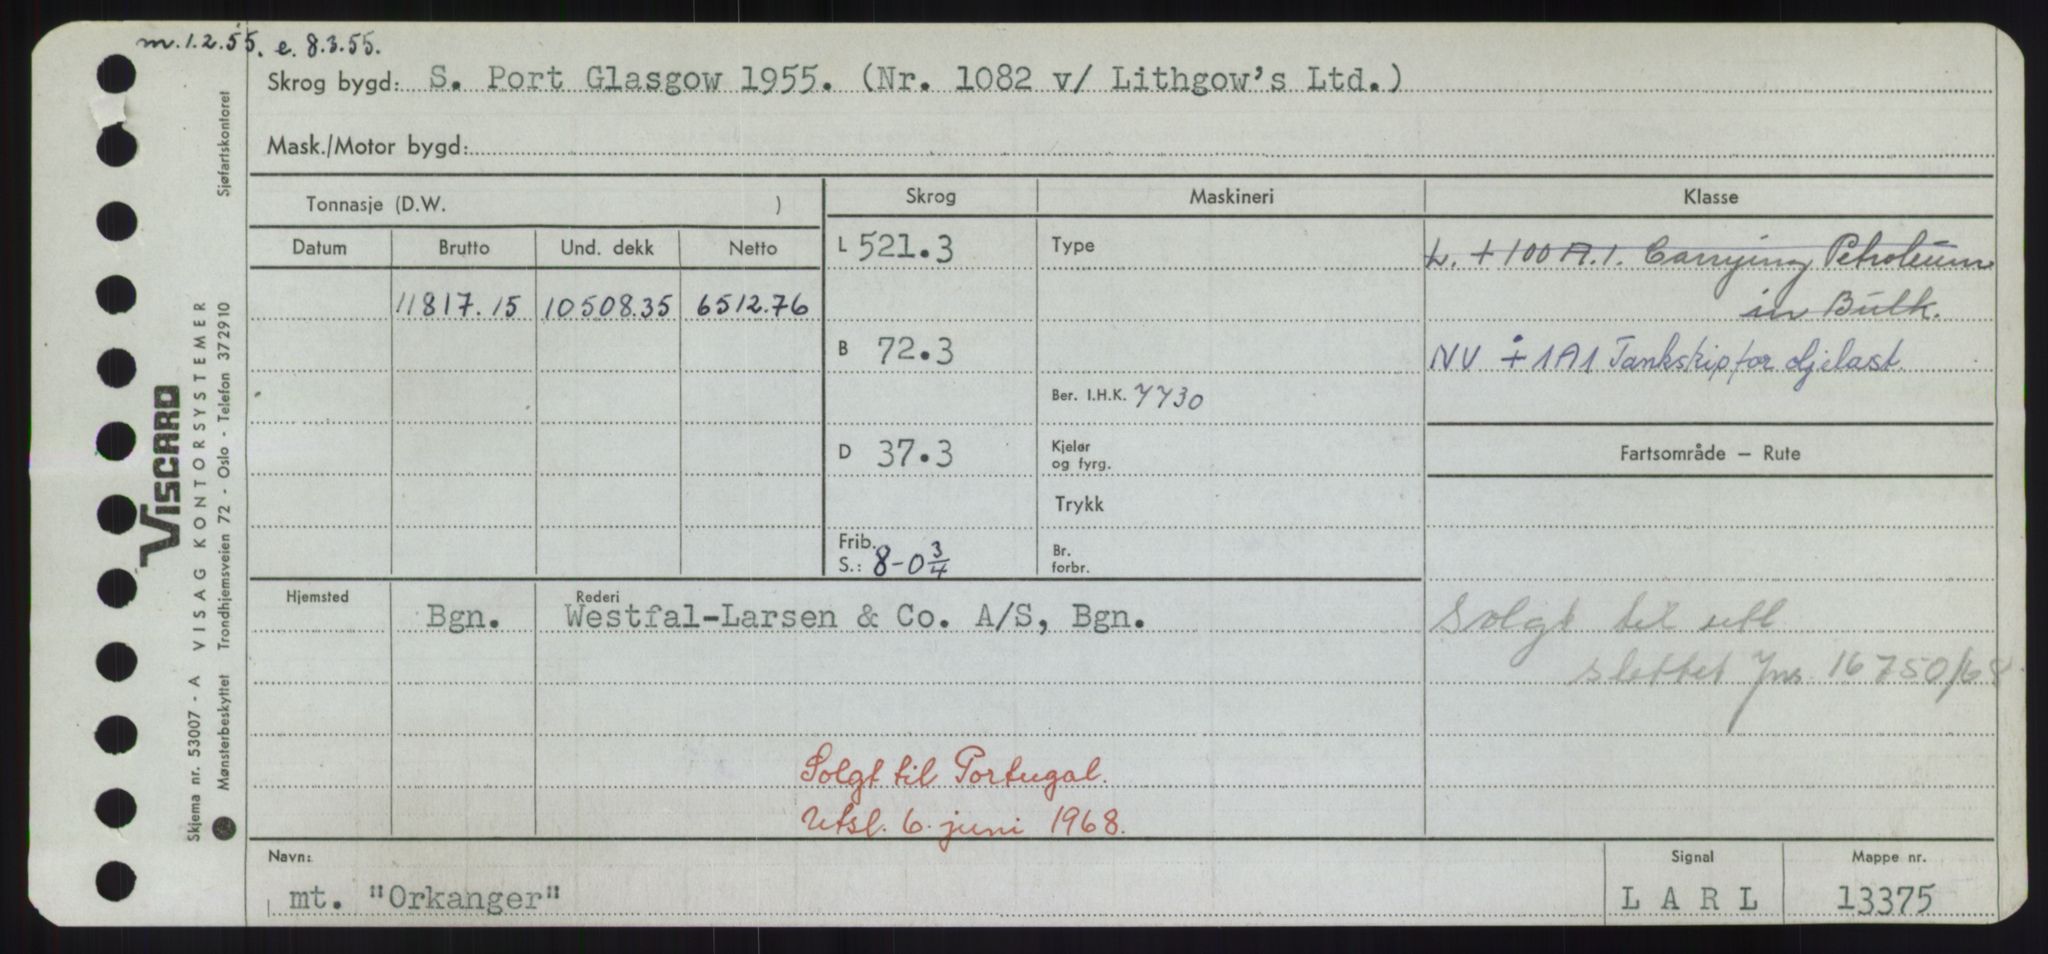 m.1.2.55. e. 8.3.55.
Skrog bygd: S. Port Glasgow 1955. (Nr. 1082 v/ Lithgow's Ltd.)
Mask./Motor bygd:
Tonnasje (D.W. )
Skrog
Maskineri
Klasse
Datum Brutto Und. dekk Netto
11817.15 10508.35 6512.76
L 521.3
B 72.3
D 37.3
Frib.
S.: 8-0 3/4
Type
Ber. I.H.K. 7730
Kjeler
og fyrg.
Trykk
Br.
forbr.
L. + 100 A.1. Carrying Petroleum
in Bulk.
NV + 1A1 Tankskip for oljelast
Fartsområde – Rute
Hjemsted
Bgn.
Rederi
Westfal-Larsen & Co. A/S, Bgn.
Solgt til utl
slettet Jnr. 16750/68
Solgt til Portugal.
Utsl. 6. juni 1968.
Navn:
mt. "Orkanger"
Signal
L A R L
Mappe nr.
13375
VISCARD
Skjema nr. 53007 - A VISAG KONTORSYSTEMER
Mønsterbeskyttet Trondhjemsveien 72 - Oslo - Telefon 372910 Sjøfartskontoret